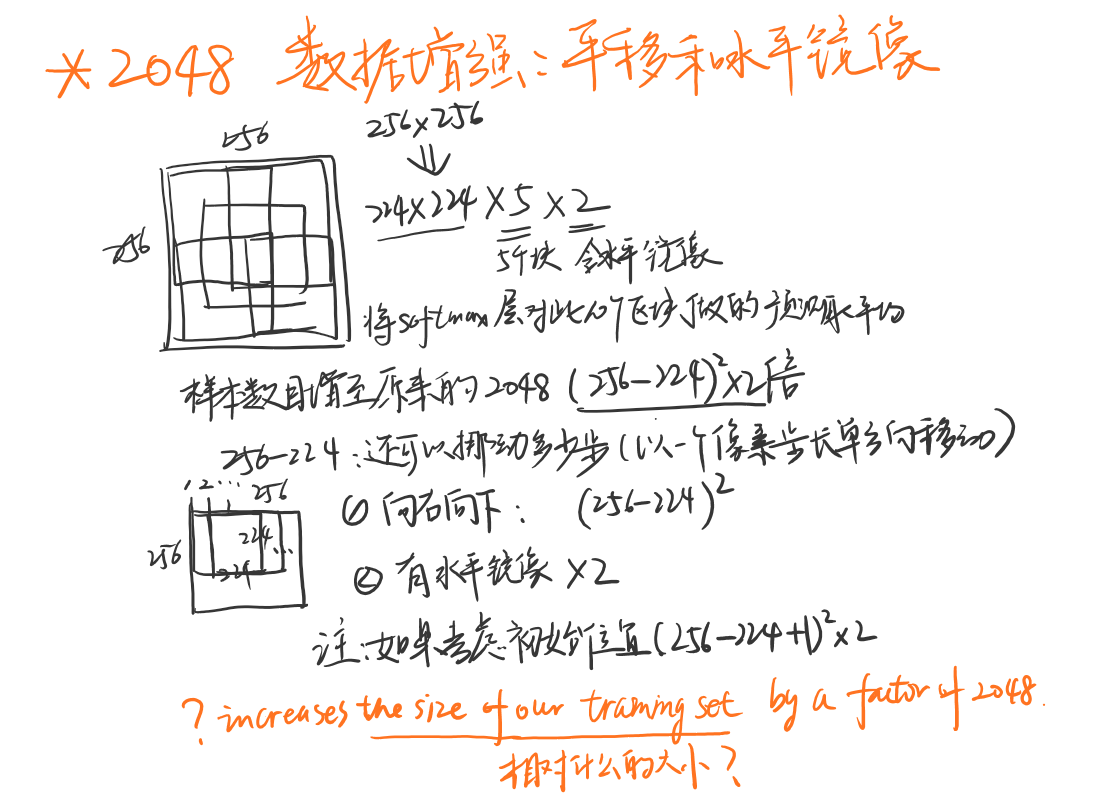 * 2048 数据增强：平移和水平镜像
256
256
256×256
⇓
224×224 ×5 ×2
5个块 含水平镜像
将softmax层对此10个区块做的预测取平均
样本数目增至原来的2048 (256-224)²×2倍
256-224：还可以挪动多少步(以一个像素步长单方向移动)
1 2 ... 256
256
224 ...
224
① 向右向下： (256-224)²
② 有水平镜像 ×2
注：如果考虑初始位置(256-224+1)²×2
? increases the size of our training set by a factor of 2048.
相对什么的大小？